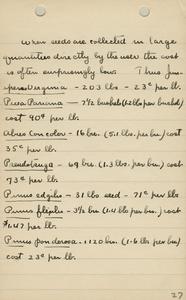 When seeds are collected in large
quantities directly by the user the cost
is often surprisingly low. Thus Juni-
perus virginia - 203 lbs - 23¢ per lb.
Picea Pariana - 7½ bushels (1.2 lbs per bushel)
cost 90¢ per lb.
Abies concolor - 16 bu. (5.1 lbs. per bu) cost
35¢ per lb.
Pseudotsuga - 69 bu. (1.3 lbs. per bu.) cost
73¢ per lb.
Pinus edulis - 31 lbs seed - 71¢ per lb.
Pinus flexilis - 3½ bu (1.4 lbs per bu. cost
$1.47 per lb.
Pinus ponderosa - 1120 bu. (1.6 lbs. per bu)
cost 23¢ per lb.
27